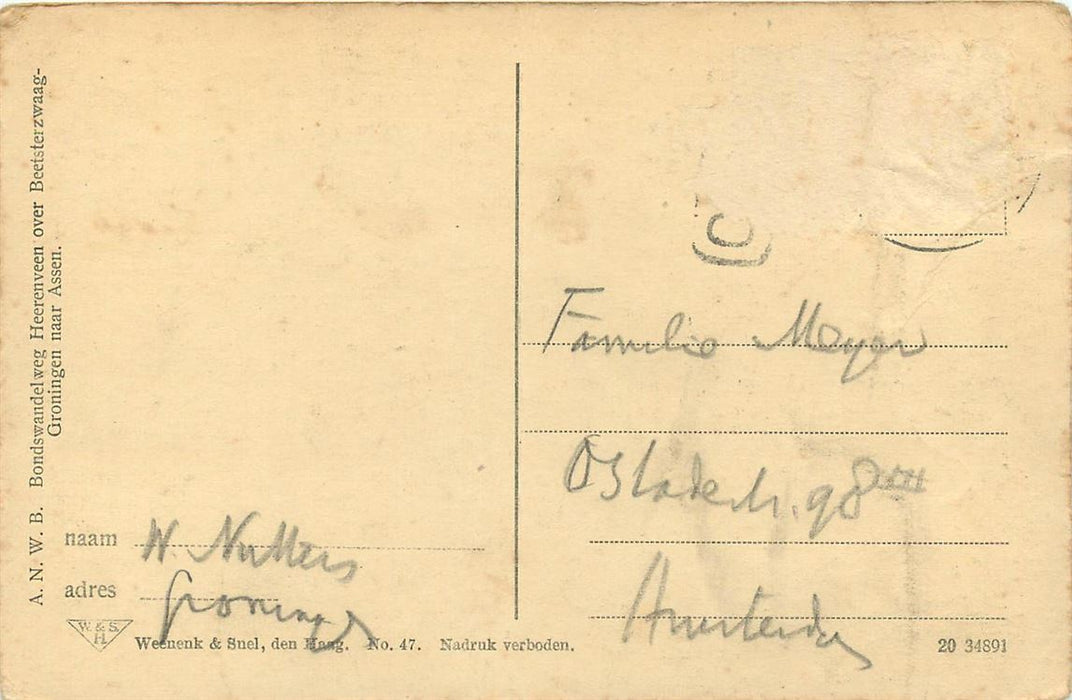 A. N. W. B. Bondswandelweg Heerenveen over Beetsterzwaag-
Groningen naar Assen.
naam W. Nutters
adres Groningen
W. & S.
H.
Weenenk & Snel, den Haag. No. 47. Nadruk verboden.
Familie Meyer
Ostadestr. 98
Amsterdam
20 34891